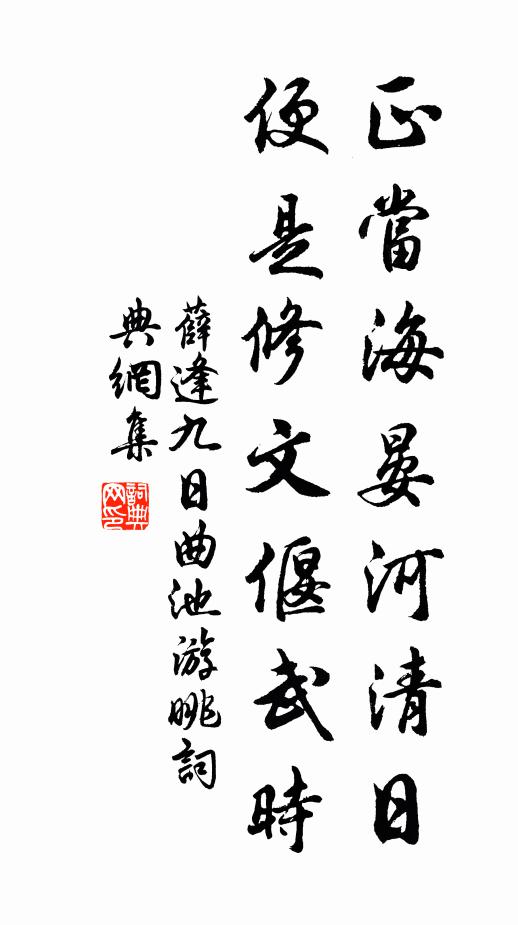 正當海晏河清日
便是修文偃武時
薛逢九日曲池游眺詞
典網集
詞典
网印